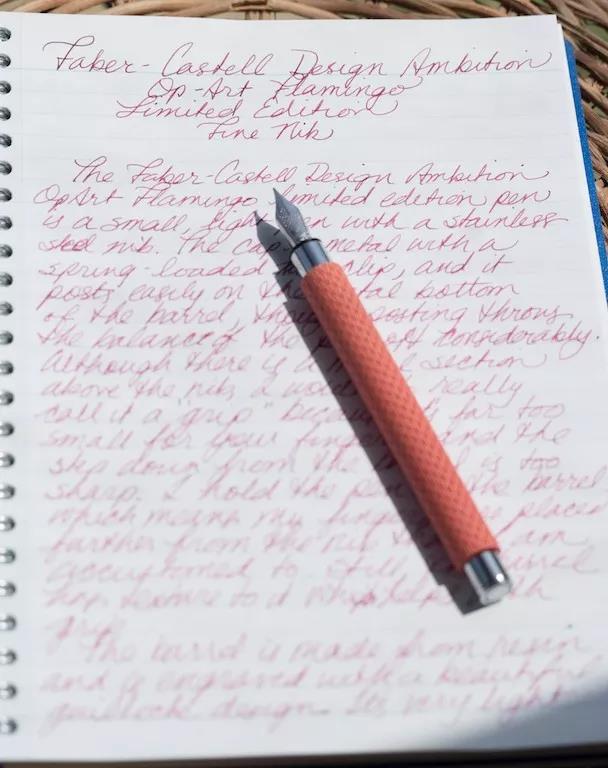 Faber-Castell Design Ambition
Op-Art Flamingo
Limited Edition
Fine Nib
The Faber-Castell Design Ambition
OpArt Flamingo limited edition pen
is a small, light pen with a stainless
steel nib. The cap metal with a
spring-loaded clip, and it
posts easily on the metal bottom
of the barrel, though posting throws
the balance of the off considerably.
Although there is a section
above the nib, I really
call it a "grip" because far too
small for your fingers and the
step down from the is too
sharp. I hold the pen the barrel
which means my placed
farther from the nib am
accustomed to still barrel
has texture to it helps
grip.
The barrel is made from resin
and is engraved with a beautiful
guilloch design. Its very light